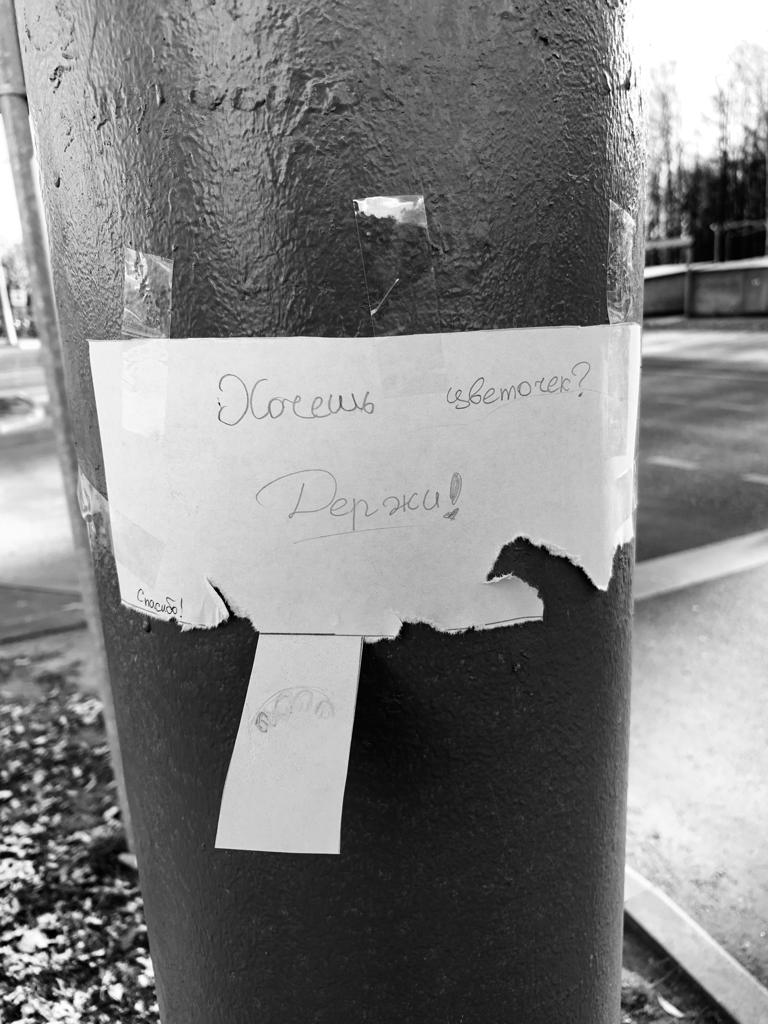 Хочешь цветочек?
Держи!
Спасибо!